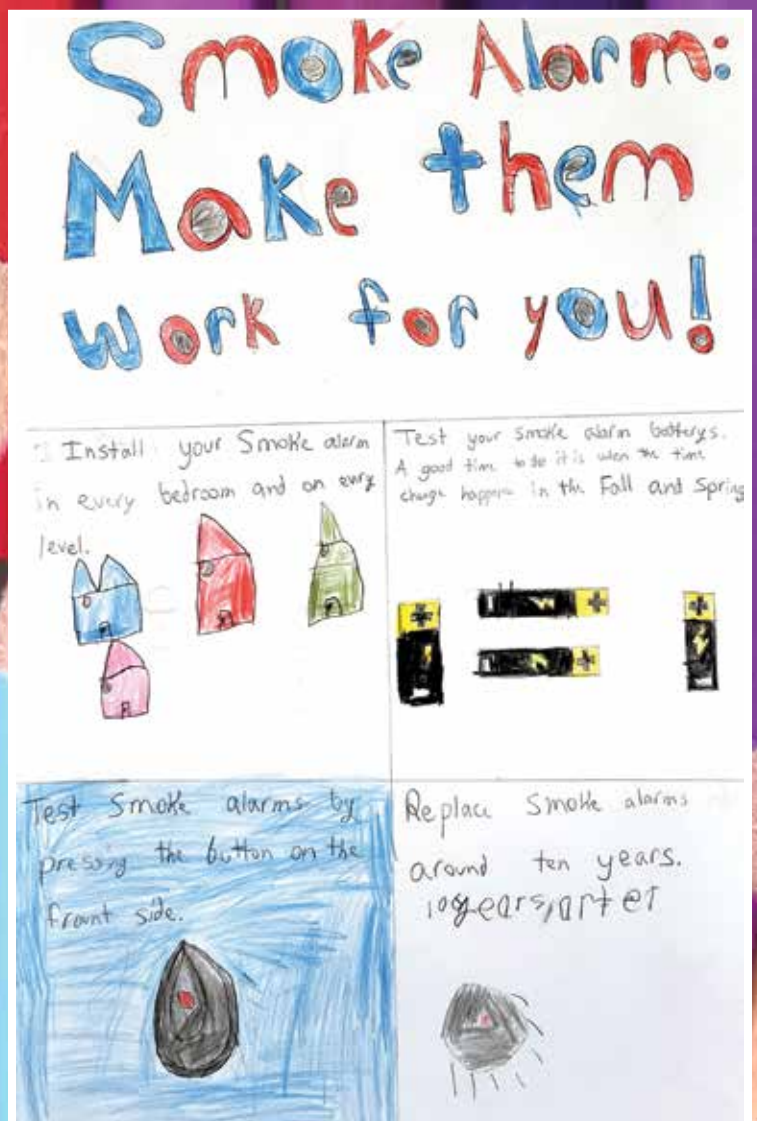 Smoke Alarm:
Make them
work for you!
Install your Smoke alarm
in every bedroom and on evry
level.
Test your smoke alarm batterys.
A good time to do it is when the time
change happens in the Fall and Spring
Test Smoke alarms by
pressing the button on the
frount side.
Replace Smoke alarms
around ten years.
10 years